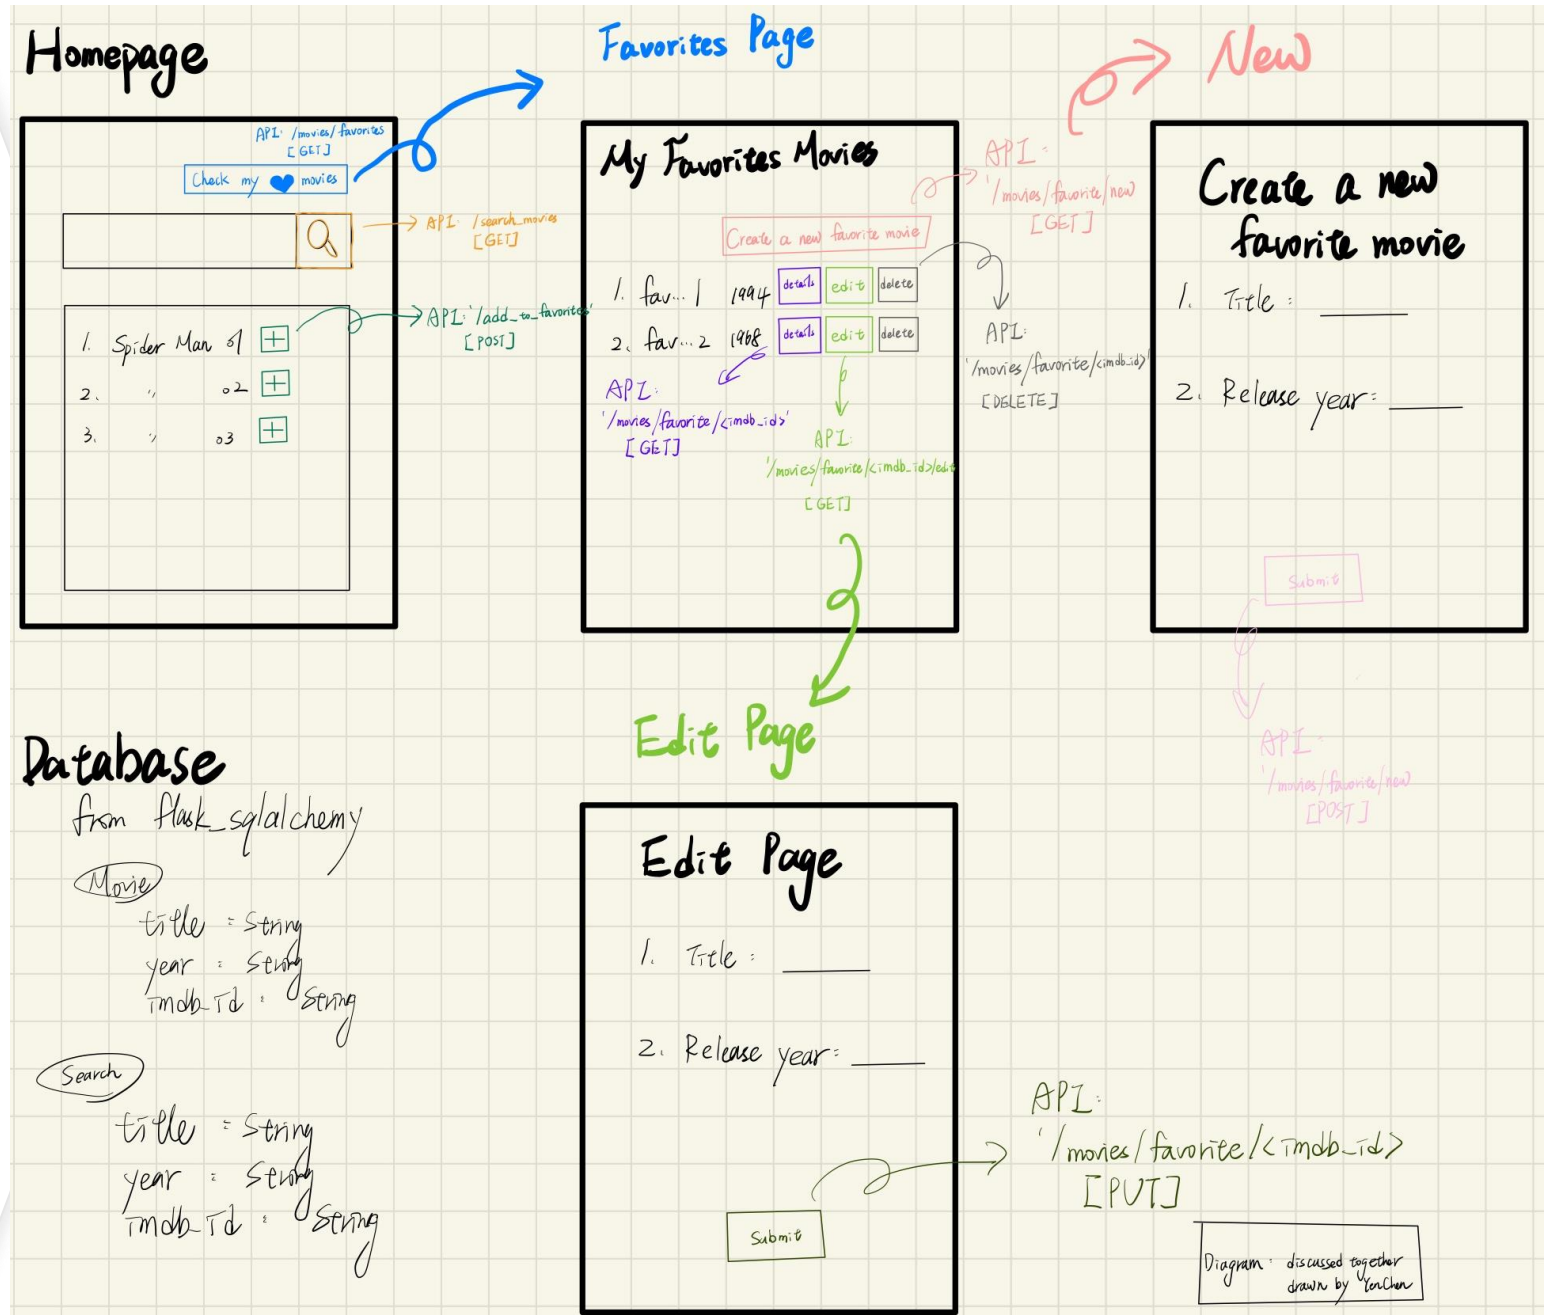 Homepage
API: /movies/favorites
[GET]
Check my movies
API: /search_movies
[GET]
1. Spider Man 01
API: '/add_to_favorites'
[POST]
2. " 02
3. " 03
Favorites Page
My Favorites Movies
Create a new favorite movie
1. fav... 1 1994 details edit delete
2. fav... 2 1968 details edit delete
API:
'/movies/favorite/<imdb_id>'
[GET]
API:
'/movies/favorite/<imdb_id>/edit
[GET]
API:
'/movies/favorite/new
[GET]
API:
'/movies/favorite/<imdb_id>'
[DELETE]
New
Create a new
favorite movie
1. Title :
2. Release year:
Submit
API:
'/movies/favorite/new
[POST]
Database
from flask_sqlalchemy
Movie
title : String
year : String
imdb_id : String
Search
title : String
year : String
imdb_id : String
Edit Page
Edit Page
1. Title :
2. Release year:
Submit
API:
'/movies/favorite/<imdb_id>
[PUT]
Diagram : discussed together
drawn by YenChen